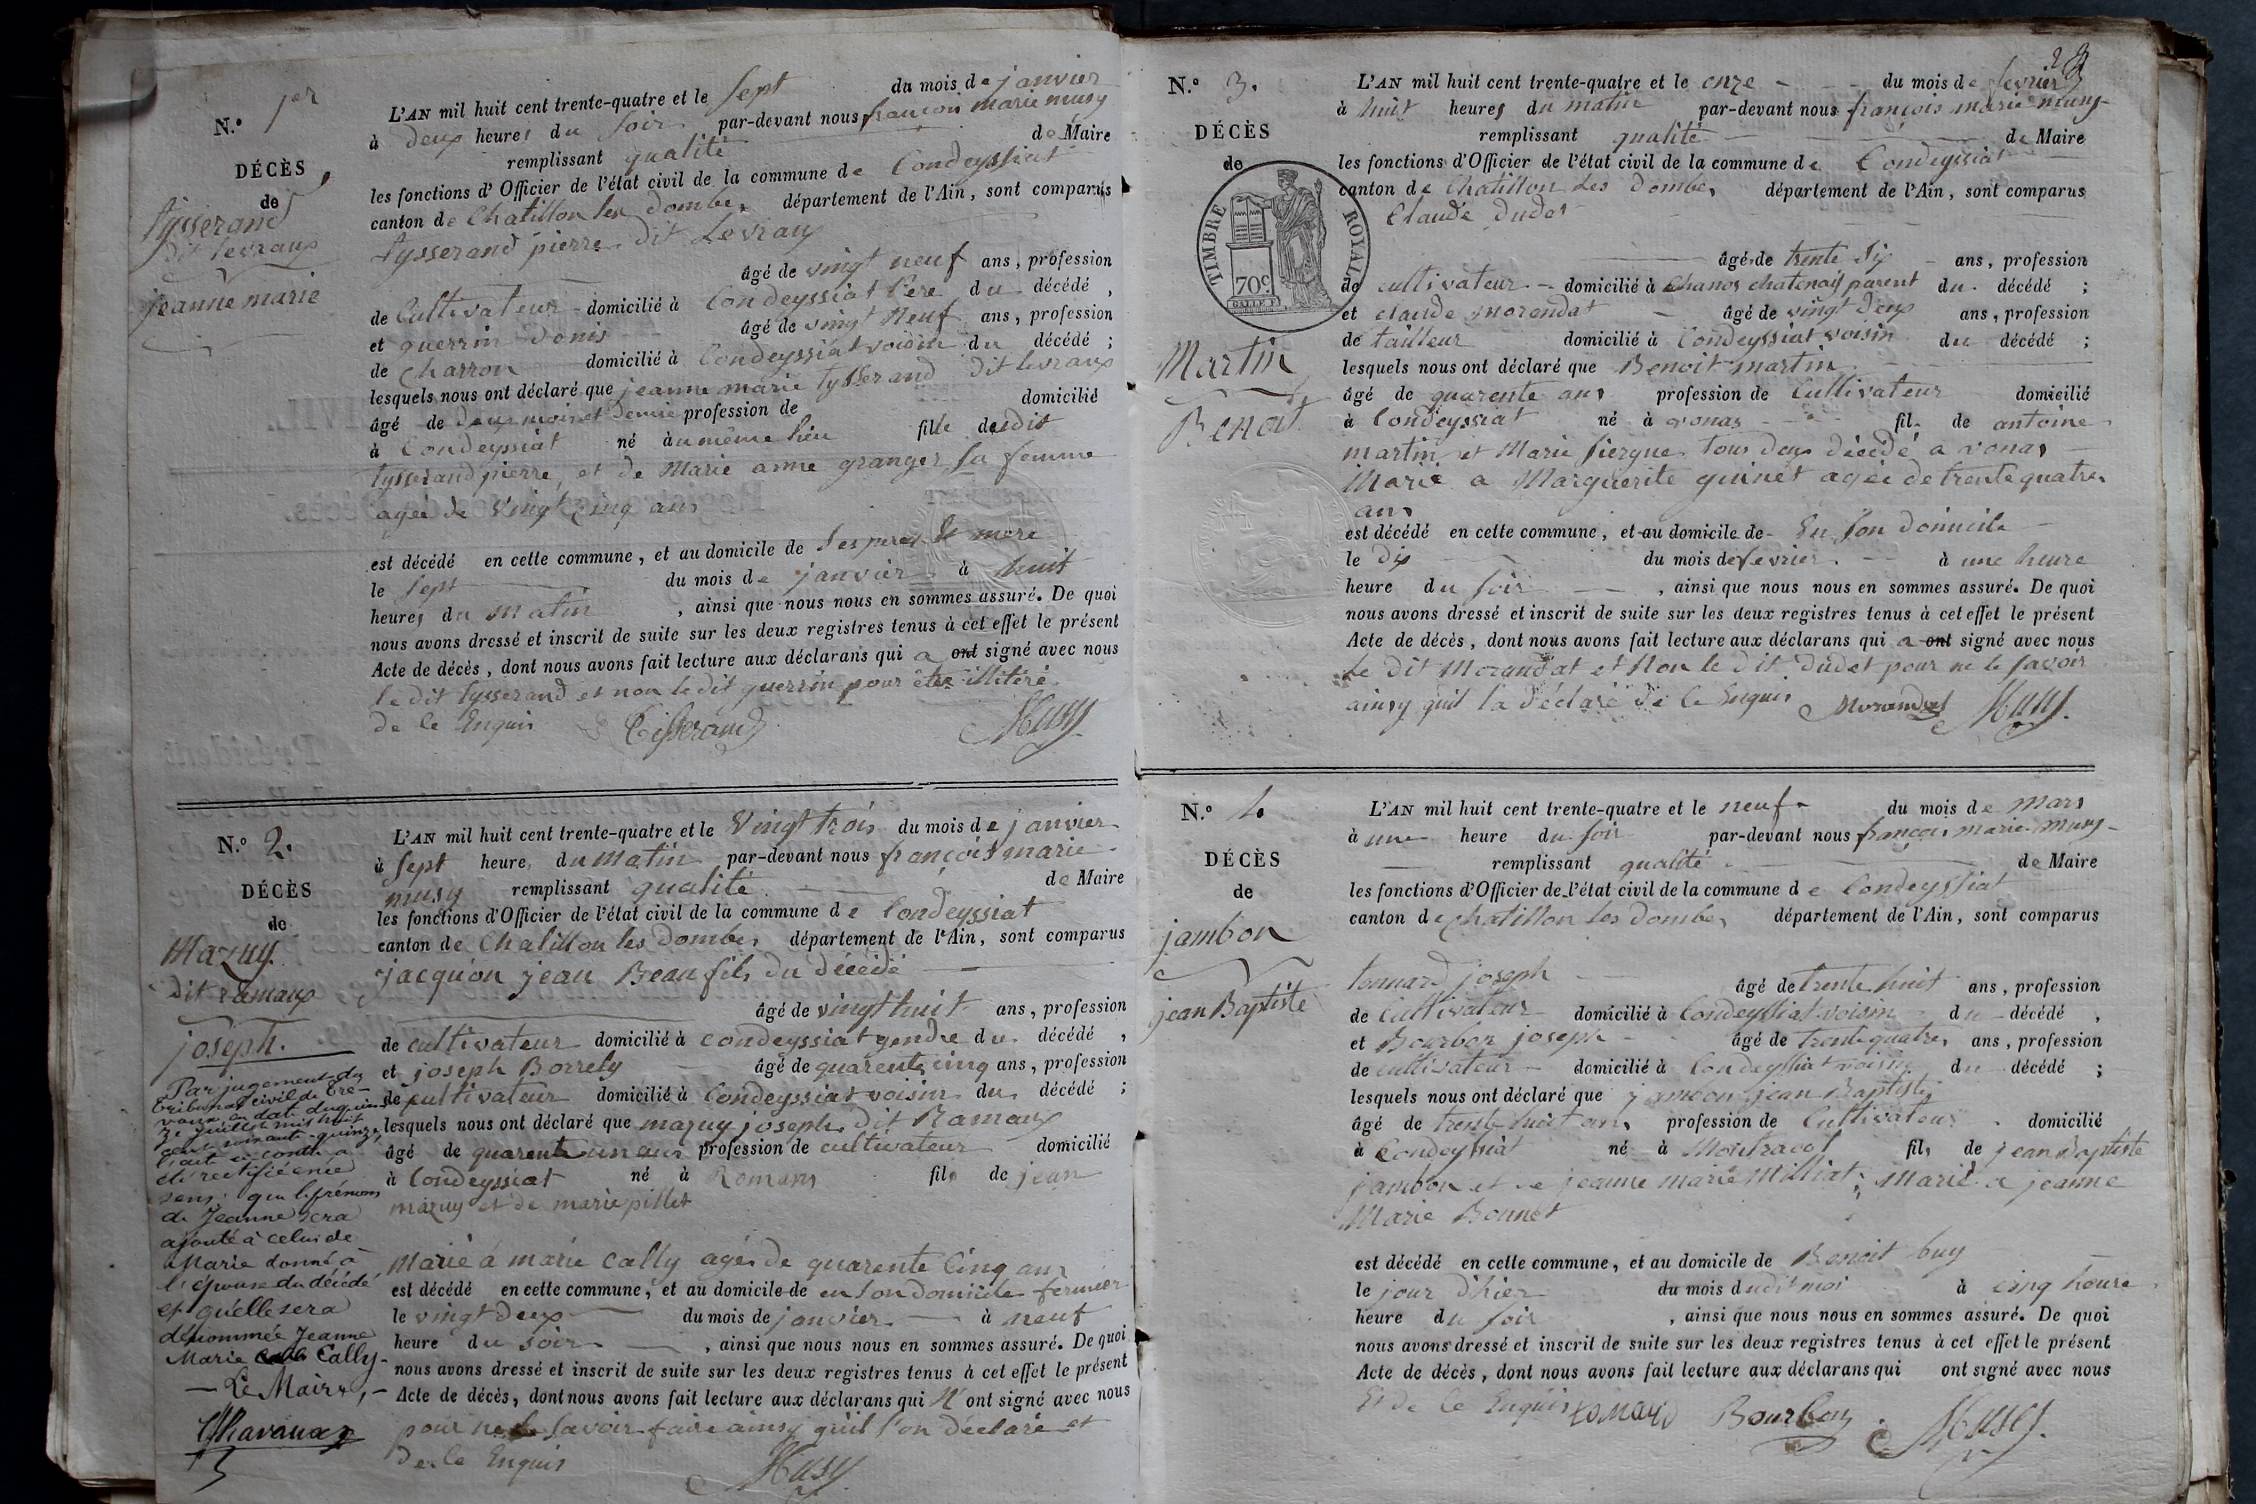 N.o 1er
DÉCÈS
de
Tysserand
dit levraux
jeanne marie
L'AN mil huit cent trente-quatre et le Sept du mois de janvier
à deux heures du soir par-devant nous françois marie musy
remplissant qualité de Maire
les fonctions d'Officier de l'état civil de la commune de Condeyssiat
canton de Chatillon les dombes département de l'Ain, sont comparus
tysserand pierre dit Levraux
âgé de vingt neuf ans, profession
de Cultivateur domicilié à Condeyssiat Père du décédé,
et guerrin Denis âgé de vingt Neuf ans, profession
de Charron domicilié à Condeyssiat voisin du décédé;
lesquels nous ont déclaré que jeanne marie tysserand dit levraux
âgé de deux mois et demie profession de domicilié
à Condeyssiat né au même lieu fille dudit
tysserand pierre, et de Marie anne granger sa femme
agée de vingt cinq ans
est décédé en cette commune, et au domicile de ses pere et mere
le sept du mois de janvier à huit
heures du matin, ainsi que nous nous en sommes assuré. De quoi
nous avons dressé et inscrit de suite sur les deux registres tenus à cet effet le présent
Acte de décès, dont nous avons fait lecture aux déclarans qui a ont signé avec nous
le dit tysserand et non le dit guerrin pour être illitéré
de ce Enquis Tisserand Musy
N.o 2.
DÉCÈS
de
Mazuy
dit ramaux
joseph.
Par jugement du
tribunal civil de Tré-
voux en date du quinze
Juillet mil huit
cent soixante-quinze,
l'acte ci-contre a
été rectifié en ce
sens: que le prénom
de Jeanne sera
ajouté à celui de
Marie donné à
l'épouse du décédé
et qu'elle sera
dénommée Jeanne
Marie Cally.
— Le Maire, —
L'AN mil huit cent trente-quatre et le Vingt trois du mois de janvier
à Sept heure, du Matin par-devant nous françois marie
musy remplissant qualité de Maire
les fonctions d'Officier de l'état civil de la commune de Condeyssiat
canton de Chatillon les Dombes département de l'Ain, sont comparus
jacquon jean Beaufils du décédé
âgé de vingt huit ans, profession
de cultivateur domicilié à condeyssiat gendre du décédé,
et joseph Borrely âgé de quarente cinq ans, profession
de cultivateur domicilié à Condeyssiat voisin du décédé;
lesquels nous ont déclaré que mazuy joseph dit Ramaux
âgé de quarente un ans profession de cultivateur domicilié
à Condeyssiat né à Romans fils de jean
mazuy et de marie pillet
Marié à marie Cally agée de quarente Cinq ans
est décédé en cette commune, et au domicile de en son domicile fermier
le vingt deux du mois de janvier à neuf
heure du soir, ainsi que nous nous en sommes assuré. De quoi
nous avons dressé et inscrit de suite sur les deux registres tenus à cet effet le présent
Acte de décès, dont nous avons fait lecture aux déclarans qui N' ont signé avec nous
pour ne le savoir faire ainsy quil l'on déclaré et
De ce Enquis Musy
23
N.o 3.
DÉCÈS
de
TIMBRE ROYAL
70c.
Martin
Benoit
L'AN mil huit cent trente-quatre et le onze du mois de fevrier
à huit heures du matin par-devant nous françois marie musy
remplissant qualité de Maire
les fonctions d'Officier de l'état civil de la commune de Condeyssiat
canton de Chatillon Les Dombes département de l'Ain, sont comparus
Claude dudet
âgé de trente Six ans, profession
de cultivateur domicilié à Chanos chatenay parent du décédé;
et claude morendat âgé de vingt deux ans, profession
de tailleur domicilié à Condeyssiat voisin du décédé;
lesquels nous ont déclaré que Benoit martin
âgé de quarente ans profession de Cultivateur domicilié
à Condeyssiat né à vonas fil de antoine
martin et Marie siergue tous deux décédé a vonas
Marié a Marguerite guinet agée de trente quatre
ans
est décédé en cette commune, et au domicile de En Son domicile
le dix du mois de fevrier à une heure
heure du soir, ainsi que nous nous en sommes assuré. De quoi
nous avons dressé et inscrit de suite sur les deux registres tenus à cet effet le présent
Acte de décès, dont nous avons fait lecture aux déclarans qui a ont signé avec nous
Le dit Morandat et Non le dit dudet pour ne le savoir
ainsy quil la déclaré de ce Enquis Morandat Musy
N.o 4.
DÉCÈS
de
jambon
jean Baptiste
L'AN mil huit cent trente-quatre et le neuf du mois de mars
à une heure du soir par-devant nous françois marie musy
remplissant qualité de Maire
les fonctions d'Officier de l'état civil de la commune de Condeyssiat
canton de Chatillon les Dombes département de l'Ain, sont comparus
tonnard joseph âgé de trente huit ans, profession
de cultivateur domicilié à Condeyssiat voisin du décédé,
et Bourbon joseph âgé de trente quatre ans, profession
de cultivateur domicilié à Condeyssiat voisin du décédé;
lesquels nous ont déclaré que jambon jean Baptiste
âgé de trente huit ans profession de Cultivateur domicilié
à Condeyssiat né à Montracol fils de jean Baptiste
jambon et de jeanne marie Milliat; Marié a jeanne
Marie Bonnet
est décédé en cette commune, et au domicile de Benoit buy
le jour d'hier du mois dudit moi à cinq heure
heure du soir, ainsi que nous nous en sommes assuré. De quoi
nous avons dressé et inscrit de suite sur les deux registres tenus à cet effet le présent
Acte de décès, dont nous avons fait lecture aux déclarans qui ont signé avec nous
Et de ce Enquis Bourbon Musy